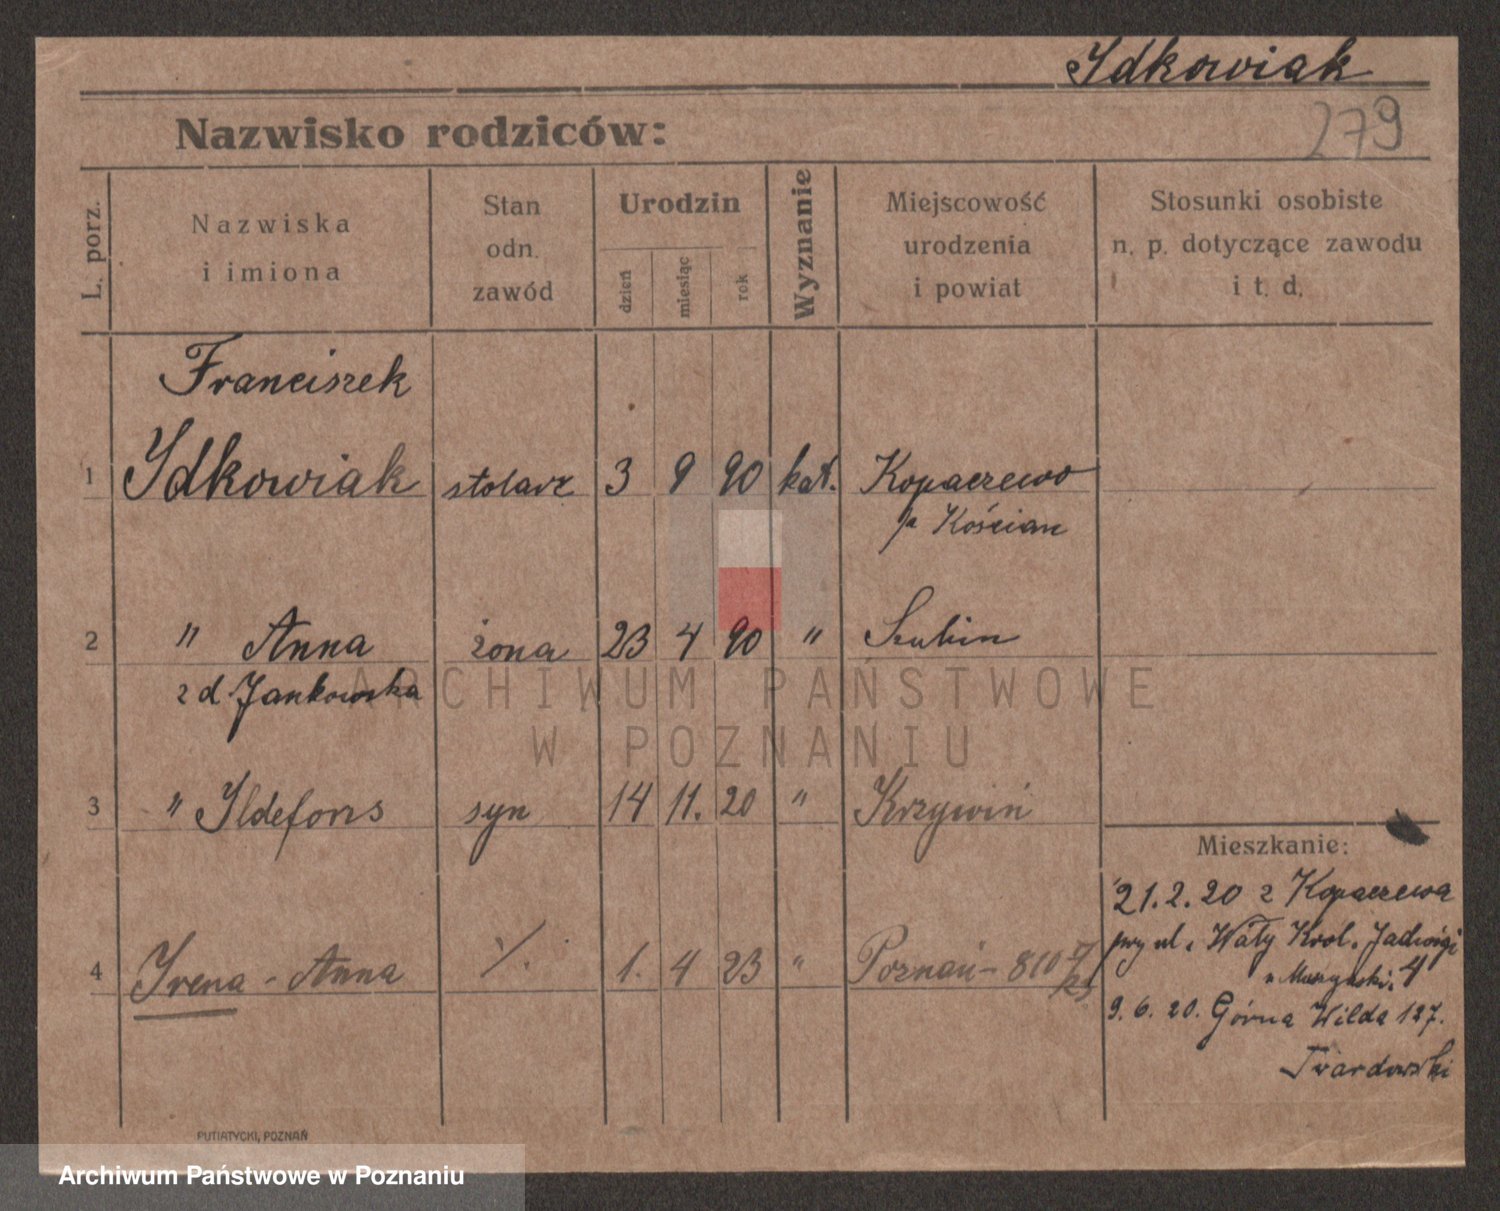 Idkowiak
279
Nazwisko rodziców:
L. porz.
Nazwiska
i imiona
Stan
odn.
zawód
Urodzin
dzień
miesiąc
rok
Wyznanie
Miejscowość
urodzenia
i powiat
Stosunki osobiste
n. p. dotyczące zawodu
i t. d.
Franciszek
1 Idkowiak stolarz 3 9 90 kat. Kopaczewo
p Kościan
2 " Anna żona 23 4 90 " Szubin
z d. Jankowska
ARCHIWUM PAŃSTWOWE
W POZNANIU
3 " Ildefons syn 14 11. 20 " Krzywiń
Mieszkanie:
21.2.20 z Kopaczewa
przy ul. Wały Król. Jadwigi
4
4 Irena - Anna 1. 4 23 " Poznań - 810
9. 6. 20. Górna Wilda 127.
Twardowski
PUTIATYCKI, POZNAŃ
Archiwum Państwowe w Poznaniu